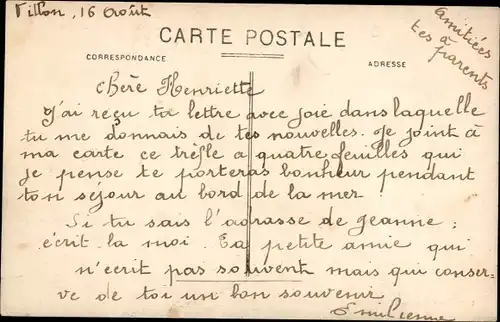 Tillon, 16 Août
Amitiées
à
tes parents
CARTE POSTALE
CORRESPONDANCE
ADRESSE
Chère Henriette
J'ai reçu ta lettre avec joie dans laquelle
tu me donnais de tes nouvelles. Je joint à
ma carte ce trèfle a quatre feuilles qui
je pense te porteras bonheur pendant
ton séjour au bord de la mer.
Si tu sais l'adrasse de Jeanne ;
écrit la moi. Ta petite amie qui
n'écrit pas souvent mais qui conser-
ve de toi un bon souvenir
Emilienne